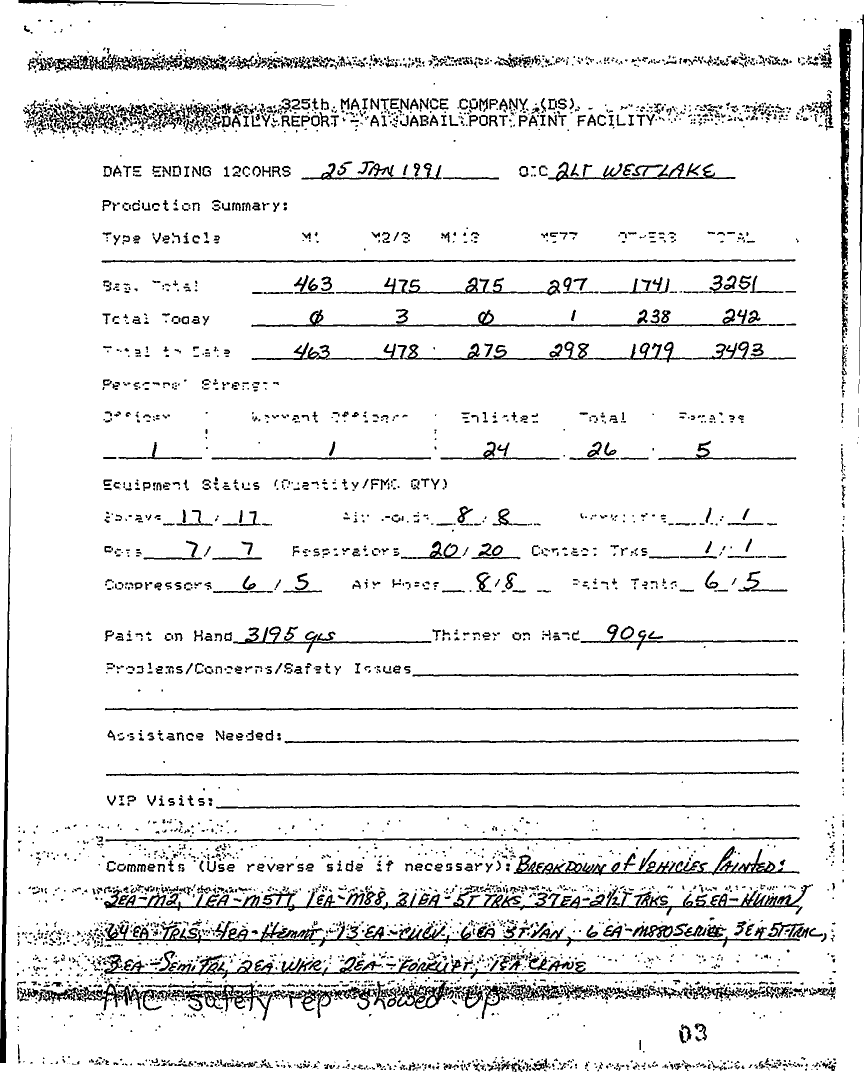 325th MAINTENANCE COMPANY (DS)
DAILY REPORT - Al JABAIL PORT PAINT FACILITY
DATE ENDING 1200HRS 25 JAN 1991 OIC 2LT WESTLAKE
Production Summary:
Type Vehicle M1 M2/3 M113 M577 OTHERS TOTAL
Beg. Total 463 475 275 297 1741 3251
Total Today 0 3 0 1 238 242
Total to Date 463 478 275 298 1979 3493
Personnel Strength
Officer Warrant Officers Enlisted Total Females
1 1 24 26 5
Equipment Status (Quantity/FMC QTY)
17 / 17 8 / 8 1 / 1
Pots 7 / 7 Respirators 20 / 20 Contact Trks 1 / 1
Compressors 6 / 5 Air Hoses 8 / 8 Paint Tents 6 / 5
Paint on Hand 3195 gls Thinner on Hand 90 gL
Problems/Concerns/Safety Issues
Assistance Needed:
VIP Visits:
Comments (Use reverse side if necessary): BREAKDOWN of VEHICLES PAINTED:
2EA-M2, 1EA-M577, 1EA-M88, 31EA-5T TRKS, 37EA-2½T TRKS, 65EA-HUMMV,
64EA-TRLS, 4EA-Hemmt, 13EA-CUCV, 6EA 5T VAN, 6EA-M880 SERIES, 3EA 5T-TRAC,
3EA-SEMI TRL, 2EA WKR, 2EA-FORKLIFT, 1EA CRANE
AMC safety rep showed up
03